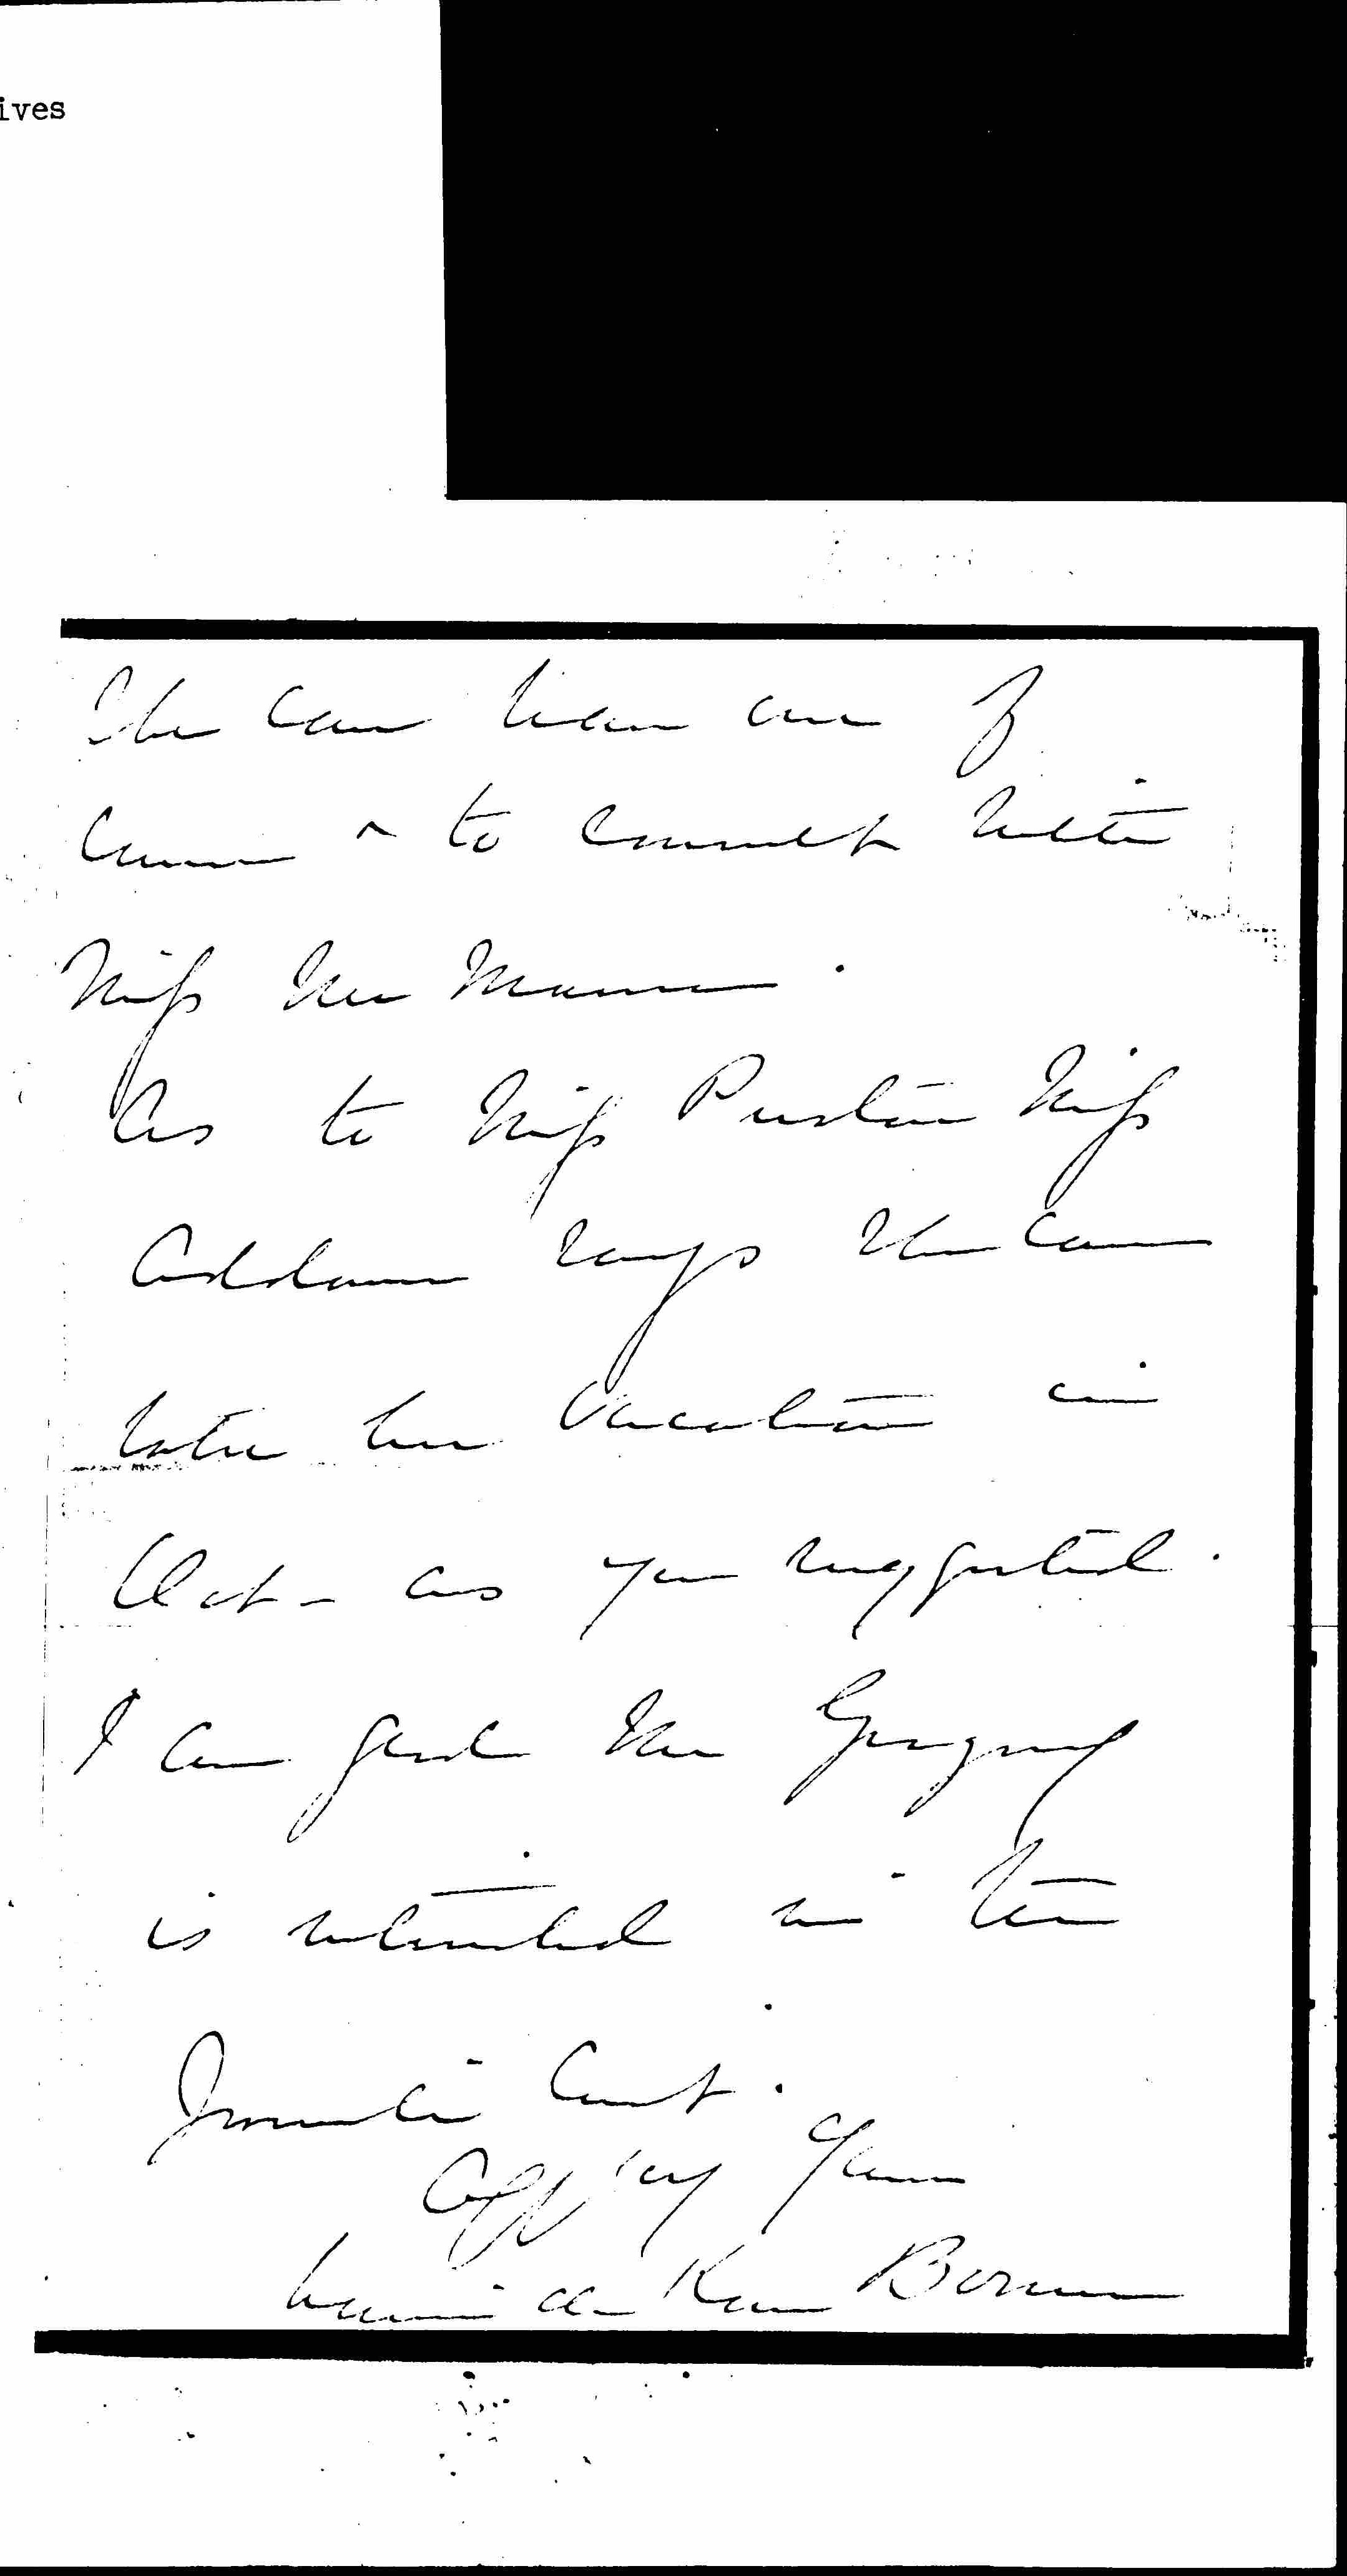 ives
She can take care of
& to consult with
Miss
As to Miss Miss
Addams says she can
take her vacation in
Oct - as you suggested.
I am glad the
is interested in the
Juvenile Court.
Aff'ly Yours
Louise de Koven Bowen